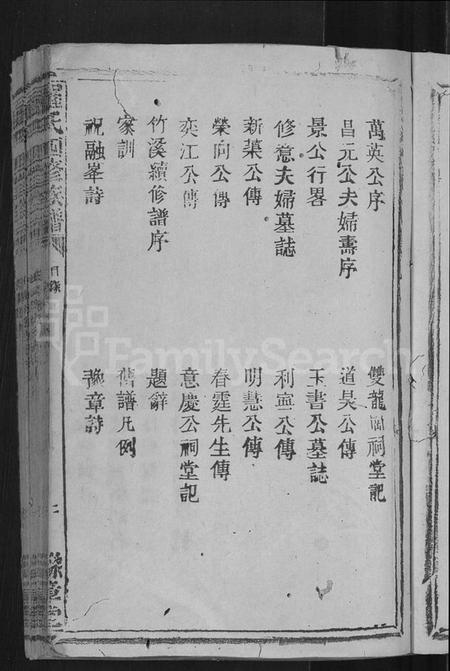 萬英公序
雙龍祠堂記
昌元公夫婦壽序
道昊公傳
景公行畧
玉書公墓誌
修意夫婦墓誌
利寧公傳
新菜公傳
明慧公傳
榮向公傳
春霆先生傳
奕江公傳
意慶公祠堂記
竹溪續修譜序
題辭
家訓
譜凡例
祝融峯詩
豫章詩
氏四修族譜
目錄
二
豫章堂
FamilySearch